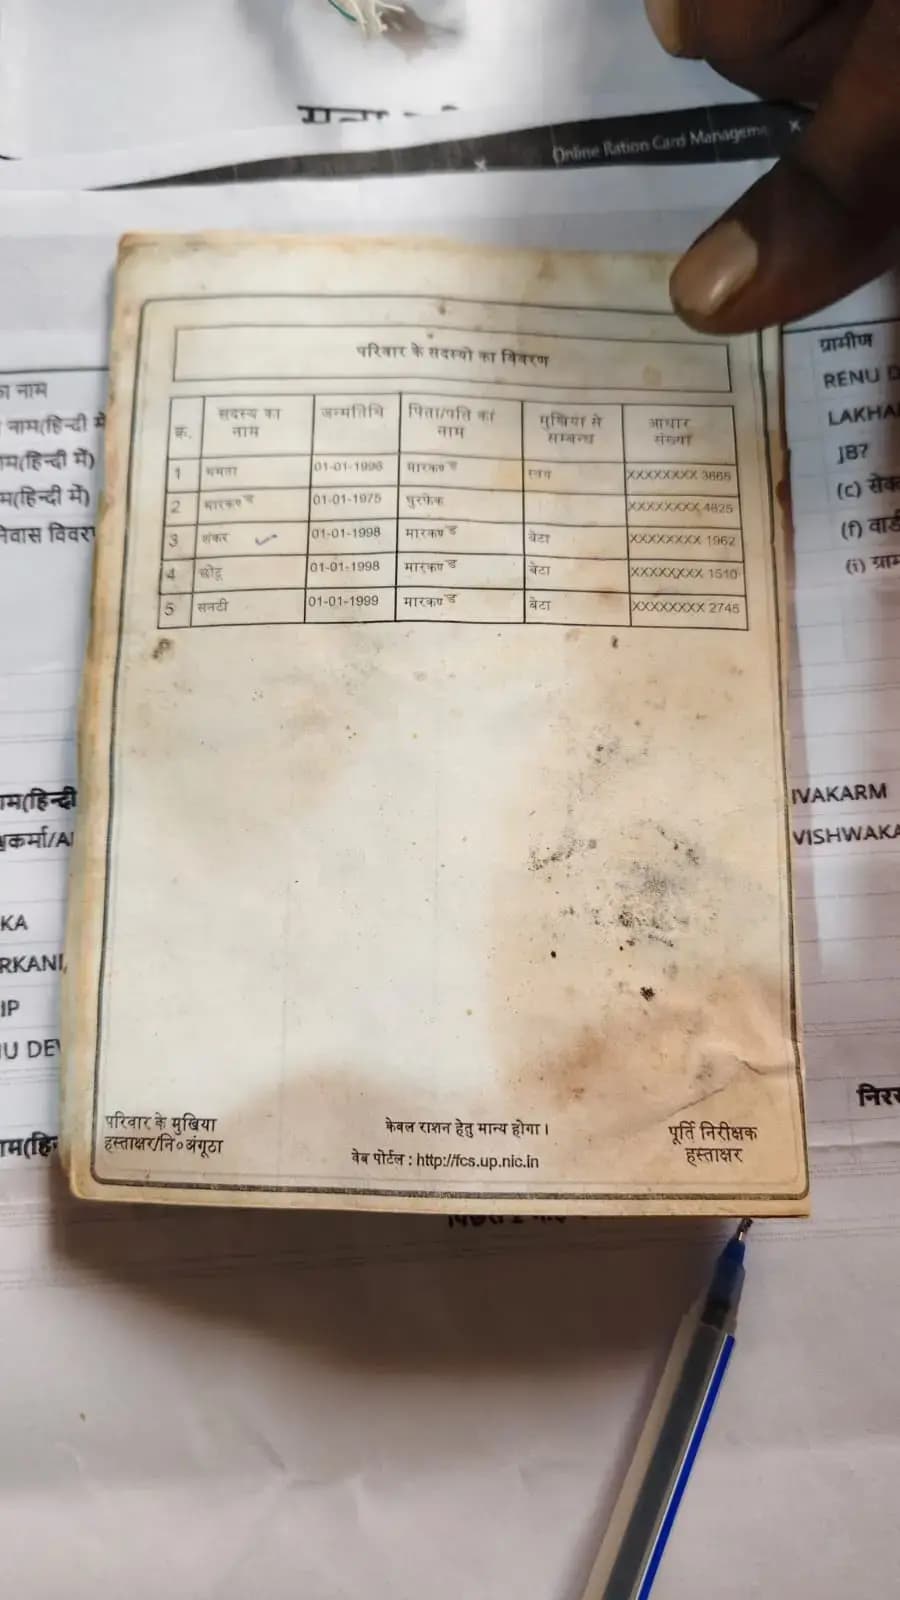 Online Ration Card Managem
परिवार के सदस्यो का विवरण
क्र. सदस्य का नाम जन्मतिथि पिता/पति का नाम मुखिया से सम्बन्ध आधार संख्या
1 ममता 01-01-1996 मारकण्ड स्वयं XXXXXXXX 3665
2 मारकण्ड 01-01-1975 XXXXXXXX 4825
3 शंकर 01-01-1998 मारकण्ड बेटा XXXXXXXX 1962
4 छोटू 01-01-1998 मारकण्ड बेटा XXXXXXXX 1510
5 सनटी 01-01-1999 मारकण्ड बेटा XXXXXXXX 2745
परिवार के मुखिया
हस्ताक्षर/नि०अंगूठा
केवल राशन हेतु मान्य होगा।
वेब पोर्टल : http://fcs.up.nic.in
पूर्ति निरीक्षक
हस्ताक्षर
का नाम
नाम(हिन्दी में
नाम(हिन्दी में)
निवास विवर
KA
RKANI,
IP
ग्रामीण
RENU D
LAKHA
JB7
(c) सेक
(f) वार्ड
(i) ग्राम
IVAKARM
VISHWAKA